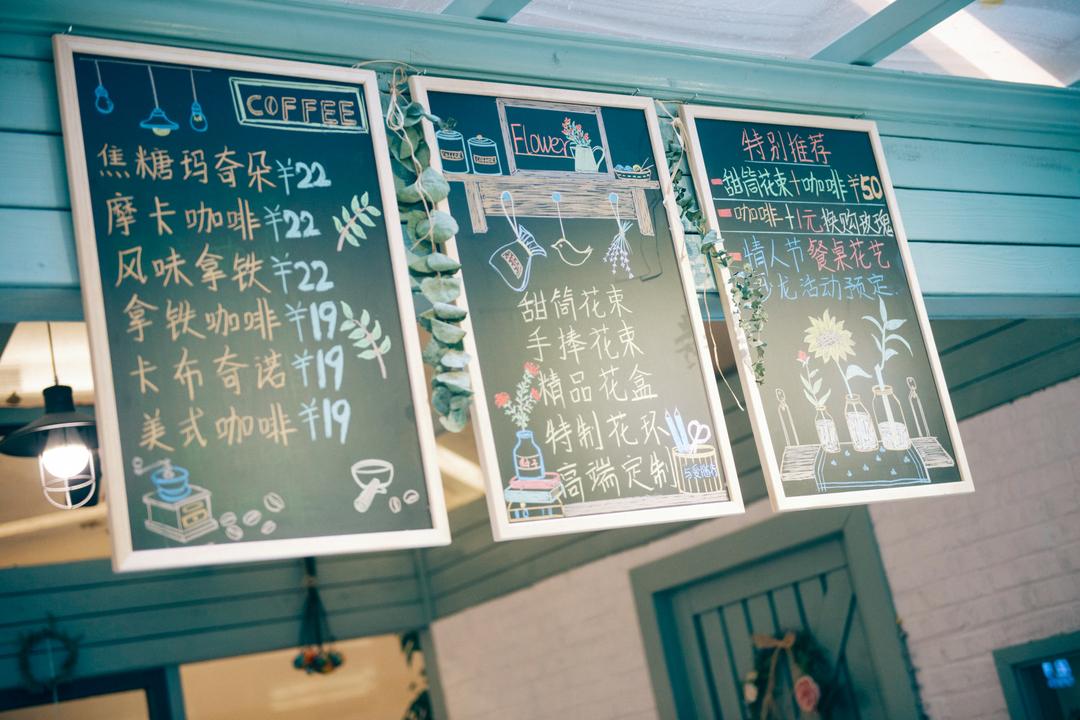 COFFEE
焦糖玛奇朵¥22
摩卡咖啡¥22
风味拿铁¥22
拿铁咖啡¥19
卡布奇诺¥19
美式咖啡¥19
Flower
甜筒花束
手捧花束
精品花盒
特制花环
高端定制
特别推荐
甜筒花束+咖啡¥50
咖啡+1元换购玫瑰
情人节餐桌花艺
沙龙活动预定